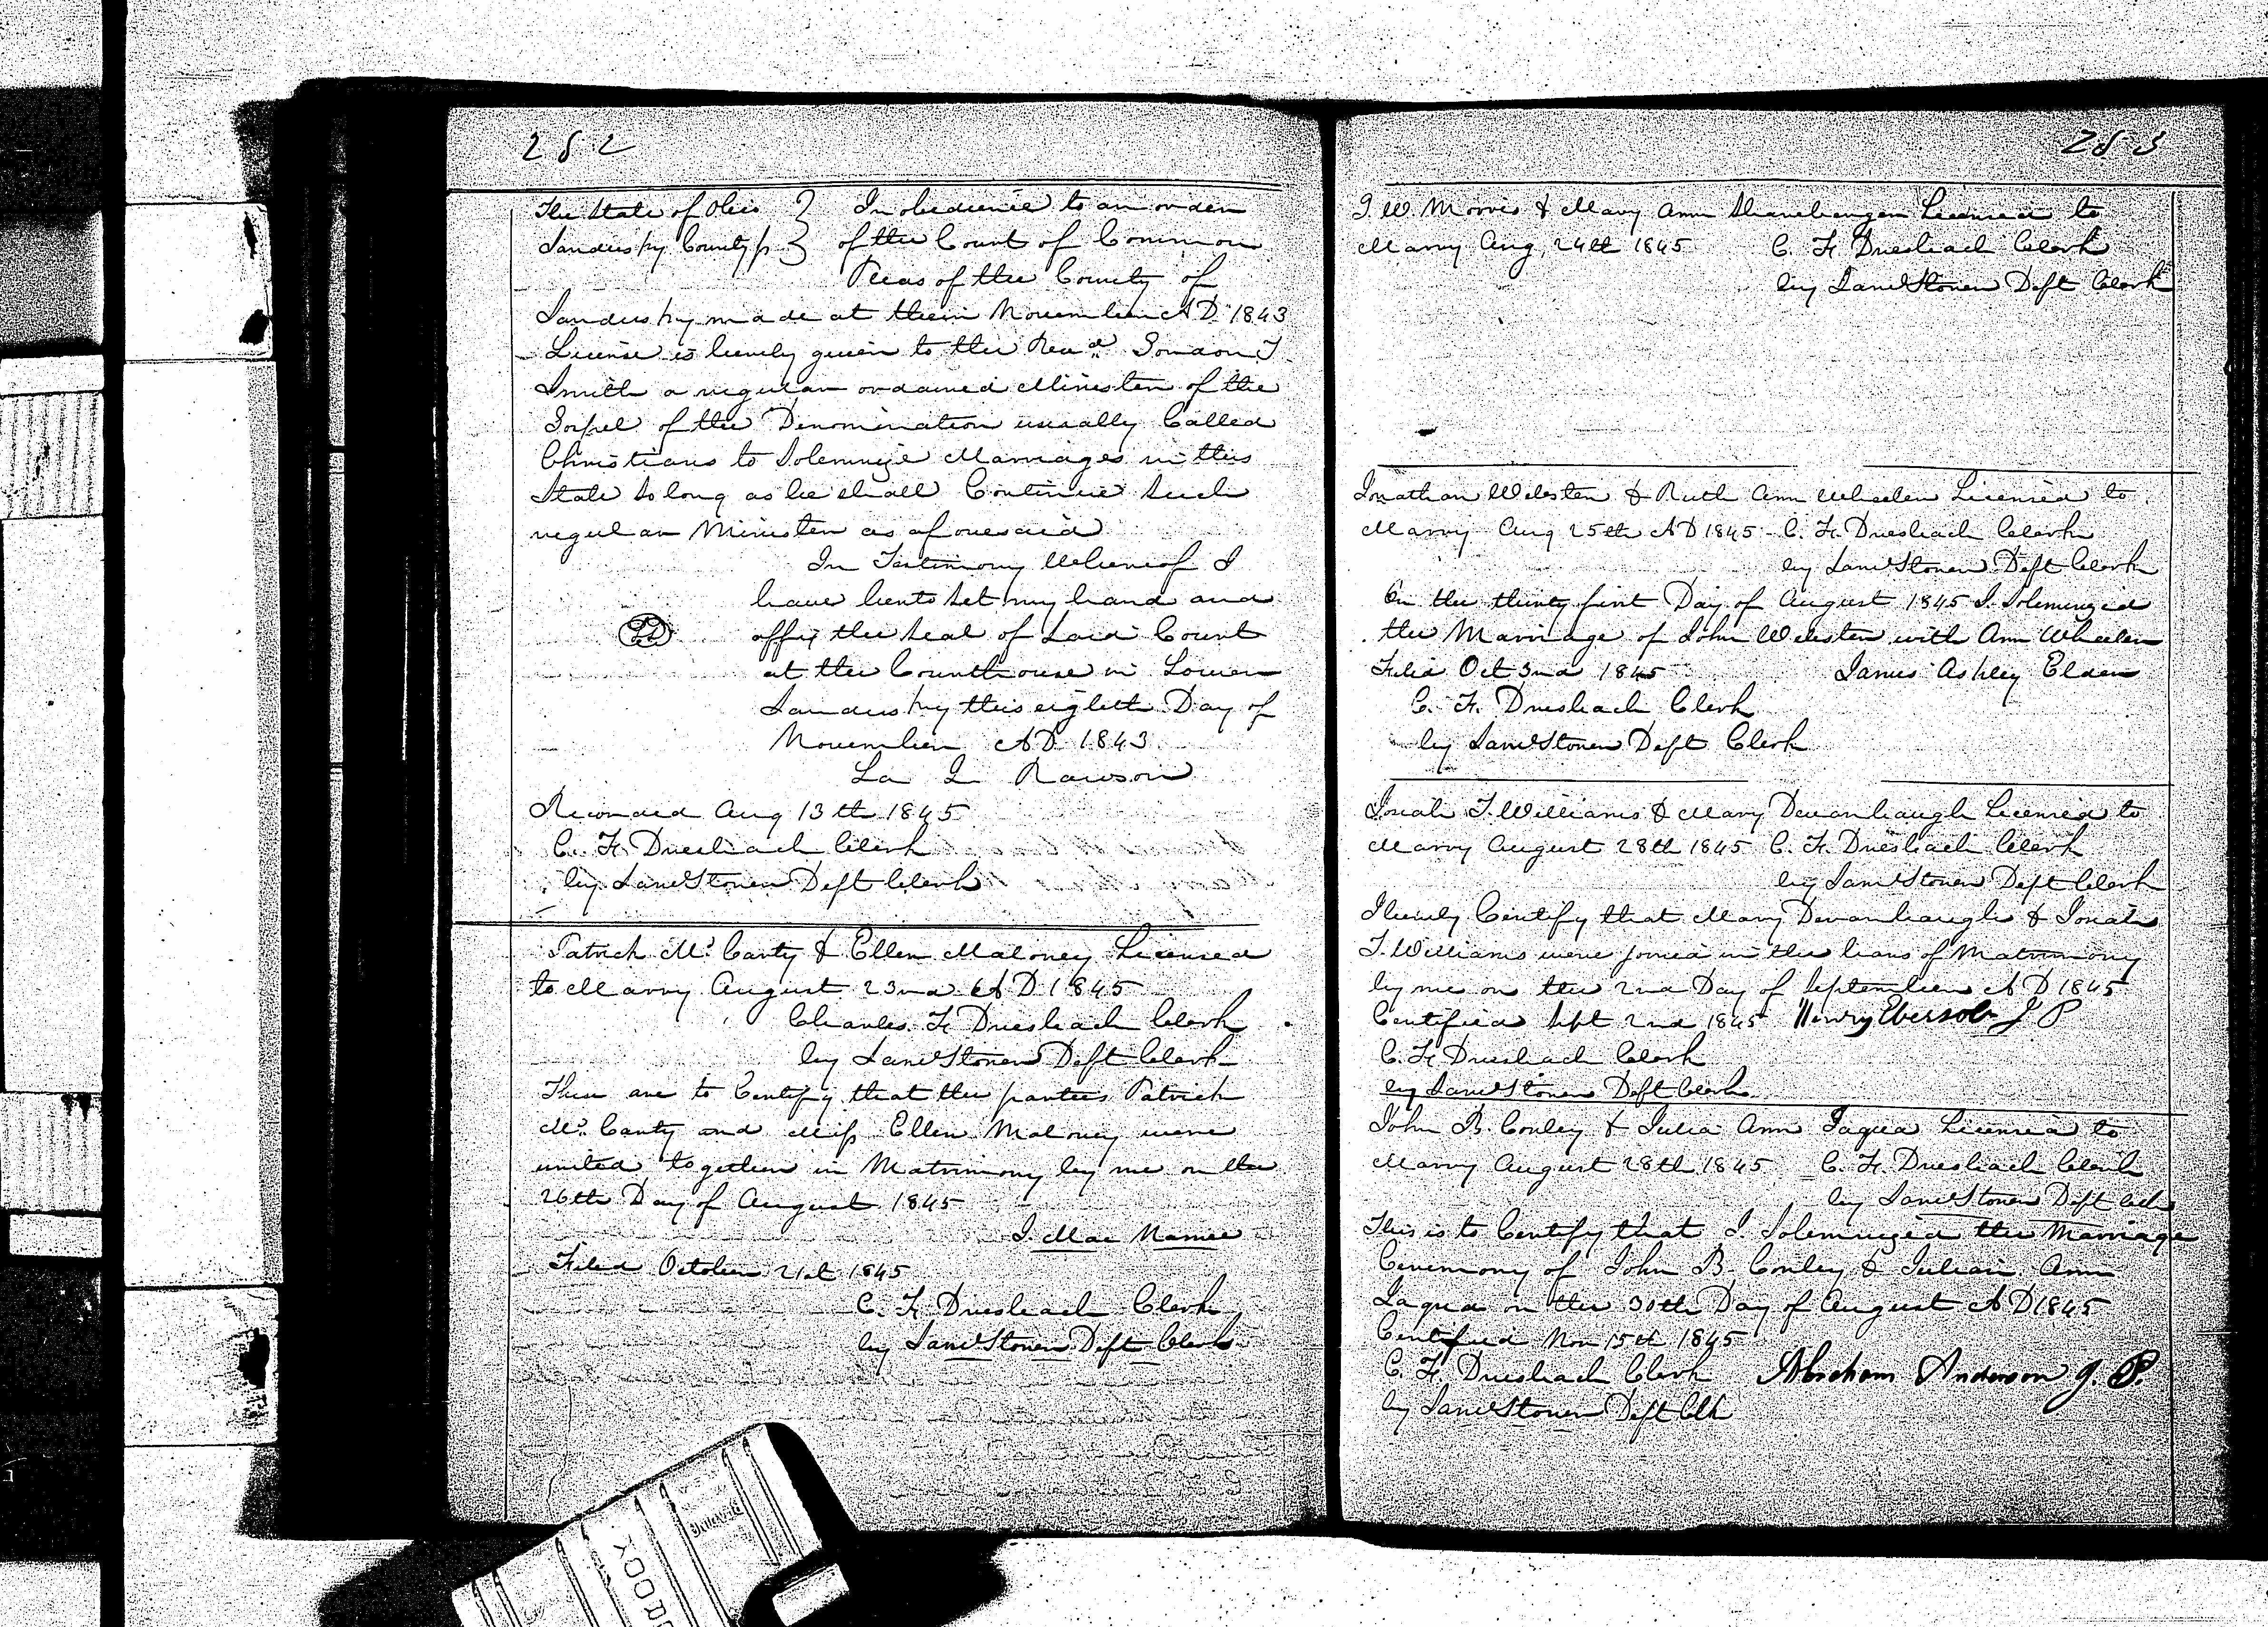 252
The State of Ohio } In obedience to an order
Sandusky County ss } of the Court of Common
Pleas of the County of
Sandusky made at their November AD 1843
License is hereby given to the Revd. Gordon T
Smith a regular ordained Minister of the
Gospel of the Denomination usually Called
Christians to Solemnize Marriages in this
State so long as he shall Continue Such
regular Minister as aforesaid
In Testimony Whereof I
have hento set my hand and
LS affix the seal of said Court
at the Courthouse in Lower
Sandusky this eighth Day of
November AD 1843
La Q Rawson
Recorded Aug 13th 1845
C. F. Dresbach Clerk
by Saml Stoner Dept Clerk
Patrick Mc Carty & Ellen Maloney Licensed
to Marry August 23nd AD 1845
Charles F Driesbach Clerk
by Saml Stoner Dept Clerk
These are to Certify that the parties Patrick
Mc Carty and Miss Ellen Maloney were
united together in Matrimony by me on the
26th Day of August 1845
J. Mac Namee
Filed October 21st 1845
C. F. Driesbach Clerk
by Saml Stoner Dept Clerk
253
J. W. Morris & Mary Ann Licensed to
Marry Aug 24th 1845 C. F. Driesbach Clerk
by Saml Stoner Dept Clerk
Jonathan Webster & Ruth Ann Wheeler Licensed to
Marry Aug 25th AD 1845 C. F. Driesbach Clerk
by Saml Stoner Dept Clerk
On the thirty first Day of August 1845 I Solemnized
the Marriage of John Webster with Ann Wheeler
Filed Oct 3nd 1845 James Ashley Elder
C. F. Driesbach Clerk
by Saml Stoner Dept Clerk
Josiah T. Williams & Mary Devanbaugh Licensed to
Marry August 28th 1845 C. F. Driesbach Clerk
by Saml Stoner Dept Clerk
I herely Certify that Mary Devanbaugh & Josiah
T. Williams were joined in the bans of Matrimony
by me on the 2nd Day of September AD 1845
Certified Sept 2nd 1845 Henry Ebersole J P
C. F. Driesbach Clerk
by Saml Stoner Dept Clerk
John B. Conley & Julia Ann Jaqua Licensed to
Marry August 28th 1845 C. F. Driesbach Clerk
by Saml Stoner Dept Clk
This is to Certify that I Solemnized the Marriage
Ceremony of John B. Conley & Julian Ann
Jaqua on the 30th Day of August AD 1845
Certified Nov 15th 1845
C. F. Driesbach Clerk Abraham Anderson J. P.
by Saml Stoner Dept Clk